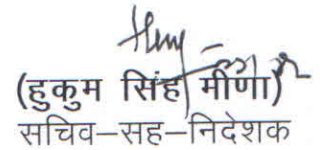 (हुकुम सिंह मीणा)
सचिव–सह–निदेशक